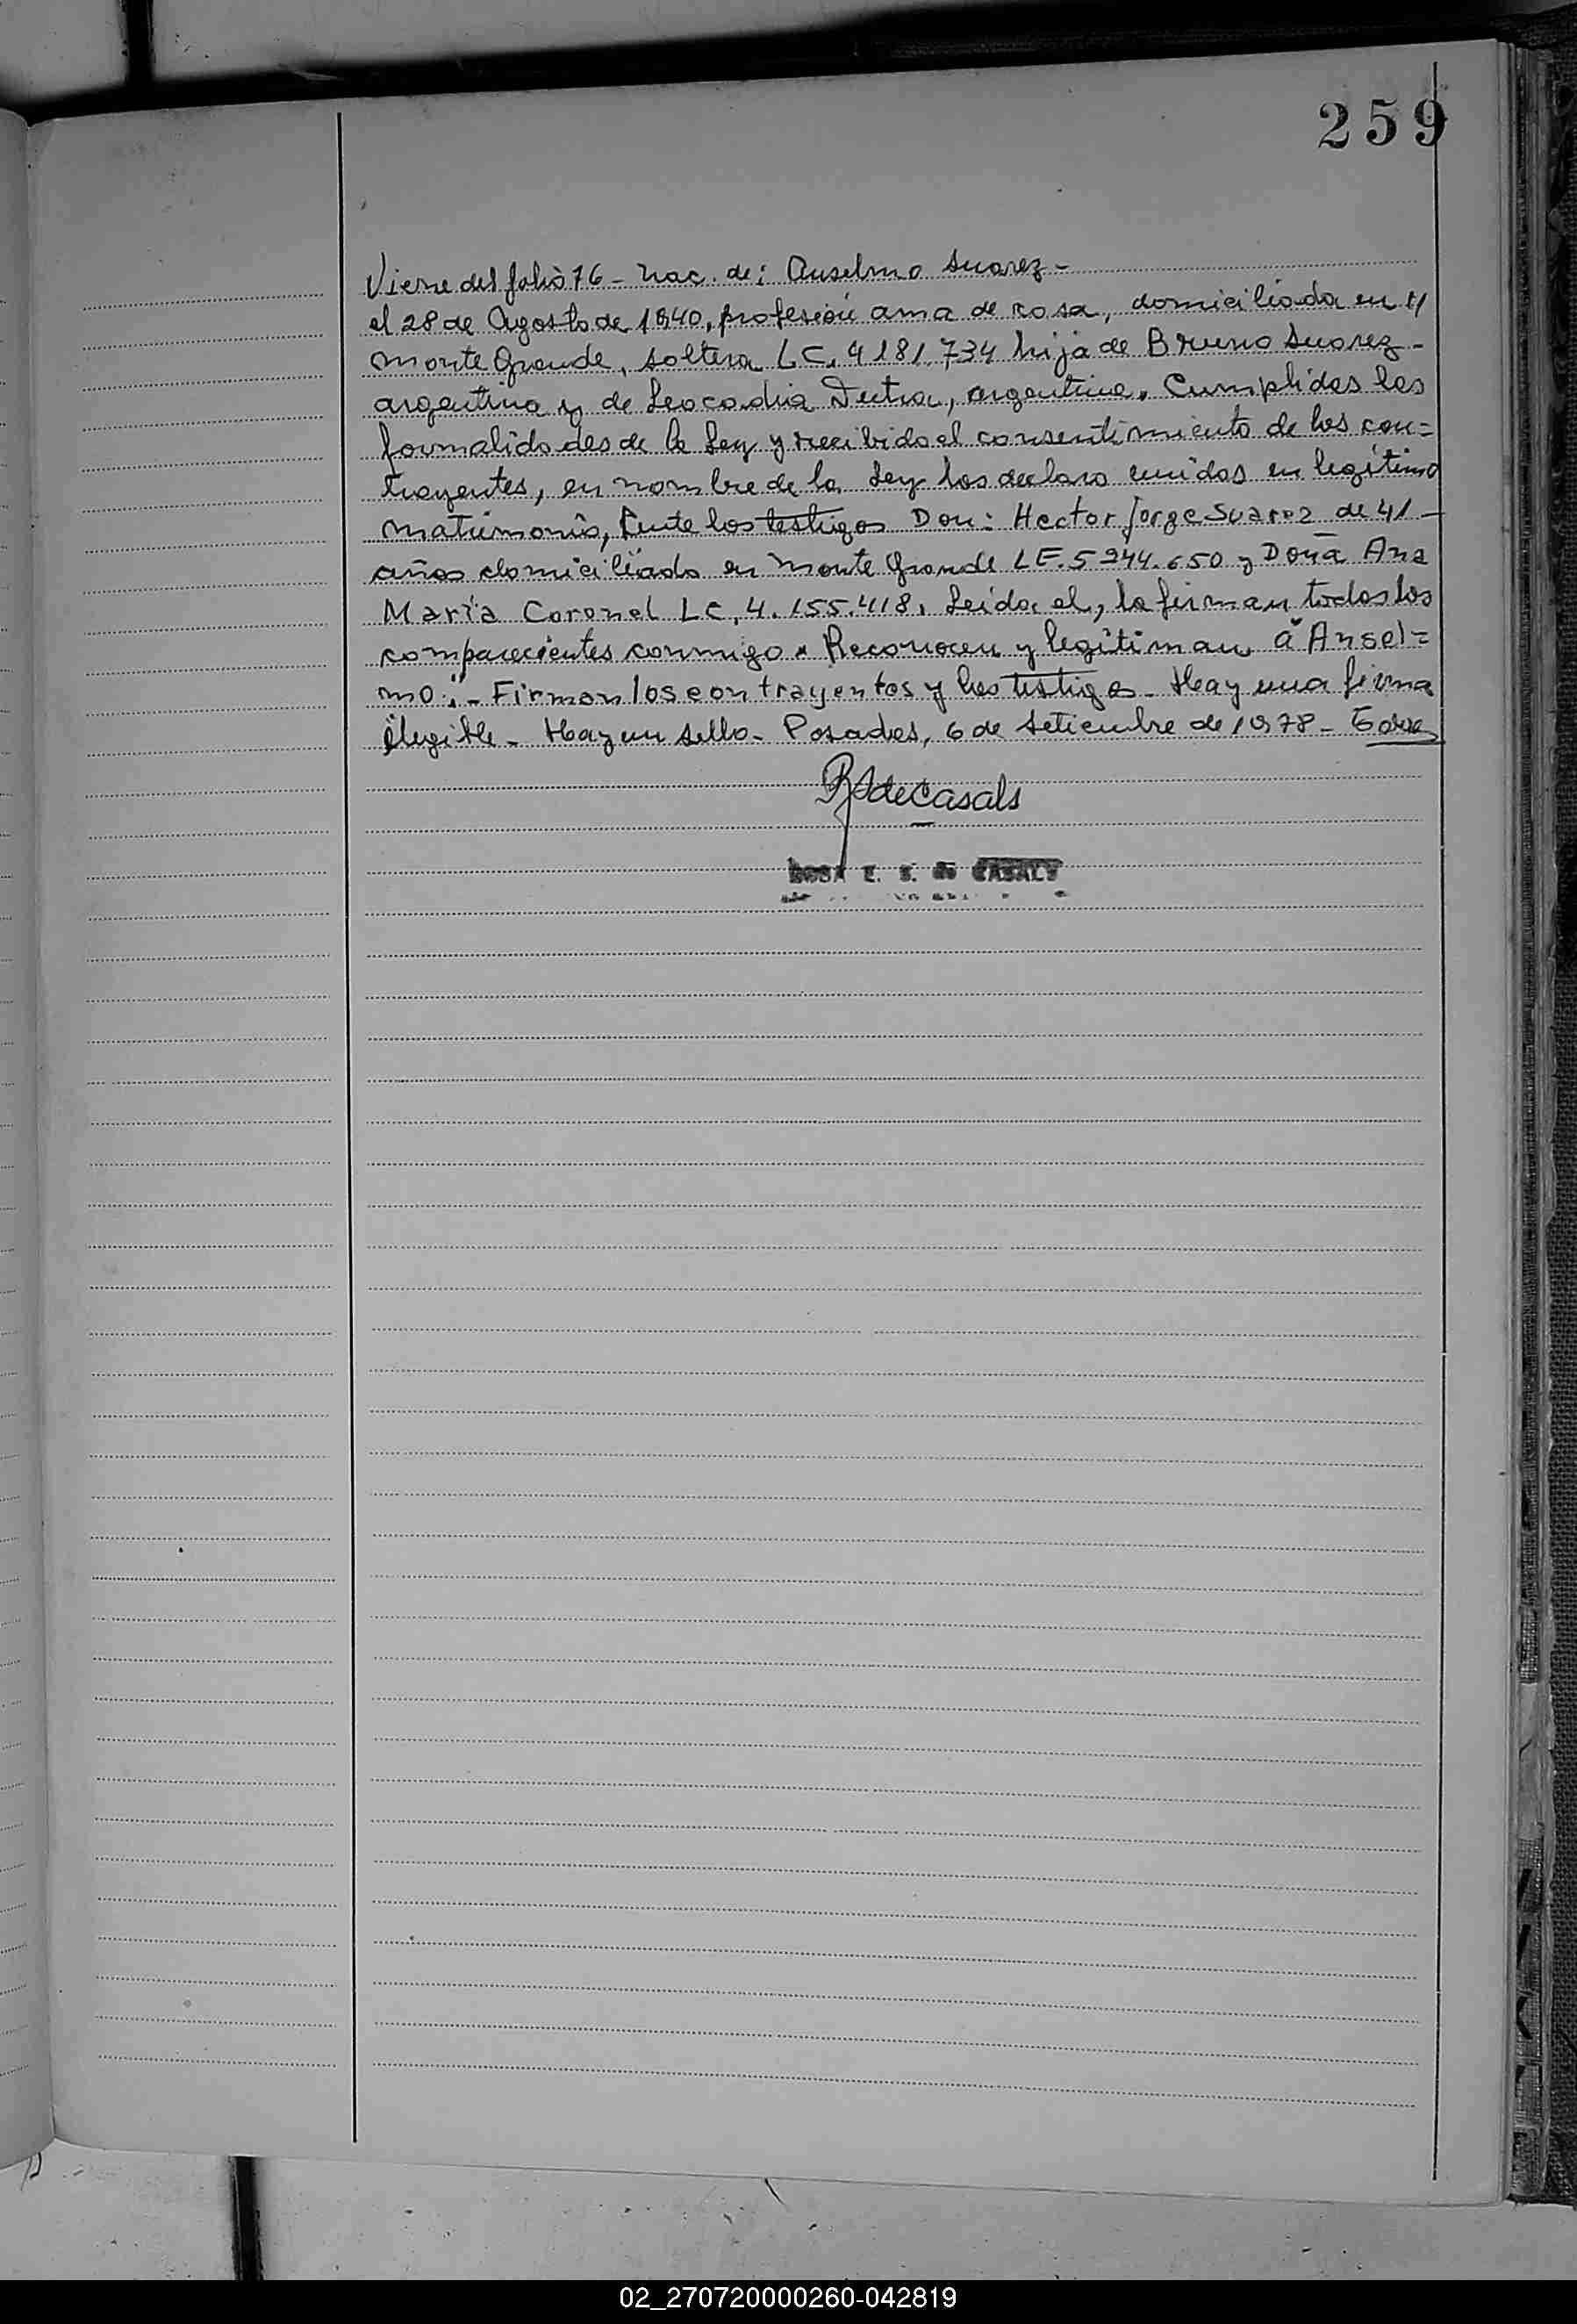 259
Viene del folio 76 - Nac. de: Anselmo Suarez -
el 28 de Agosto de 1940, profesión ama de casa, domiciliada en
Monte Grande, soltera LC. 4181734 hija de Bruno Suarez -
argentino y de Leocadia Dutra, argentina. Cumplidas las
formalidades de la Ley y recibido el consentimiento de los con=
trayentes, en nombre de la Ley los declaro unidos en legítimo
matrimonio, Ante los testigos Don: Hector Jorge Suarez de 41 -
años domiciliado en Monte Grande LE. 5 244.650 y Doña Ana
María Coronel LC. 4.155.418. Leída el, la firman todos los
comparecientes conmigo. Reconocen y legítiman a "Ansel=
mo". - Firman los contrayentes y los testigos - Hay una firma
ilegible - Hay un sello - Posadas, 6 de Setiembre de 1978 -
de Casals
ROSA E. S. de CASALS
02_270720000260-042819